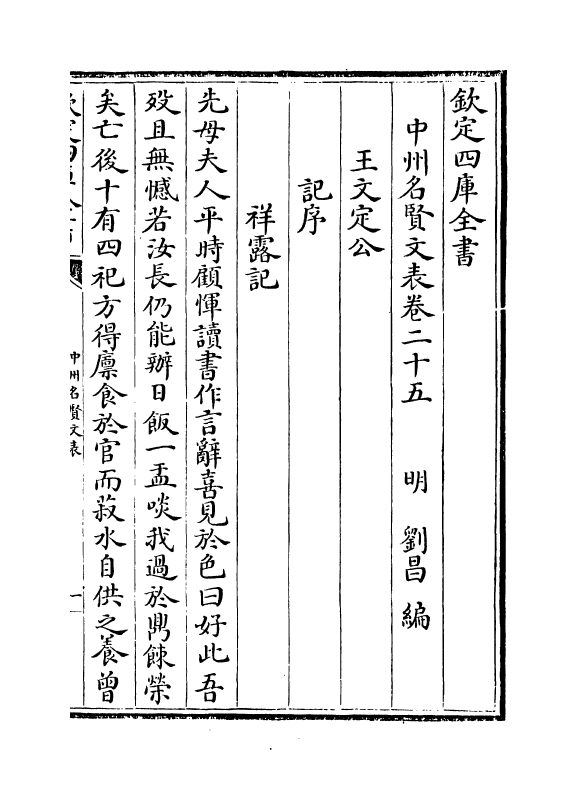 欽定四庫全書
中州名賢文表卷二十五　　明　劉昌　編
王文定公
記序
祥露記
先母夫人平時顧惲讀書作言辭喜見於色曰好此吾
歿且無憾若汝長仍能辦日飯一盂啖我過於鼎餗榮
矣亡後十有四祀方得廪食於官而菽水自供之養曽
中州名賢文表
一